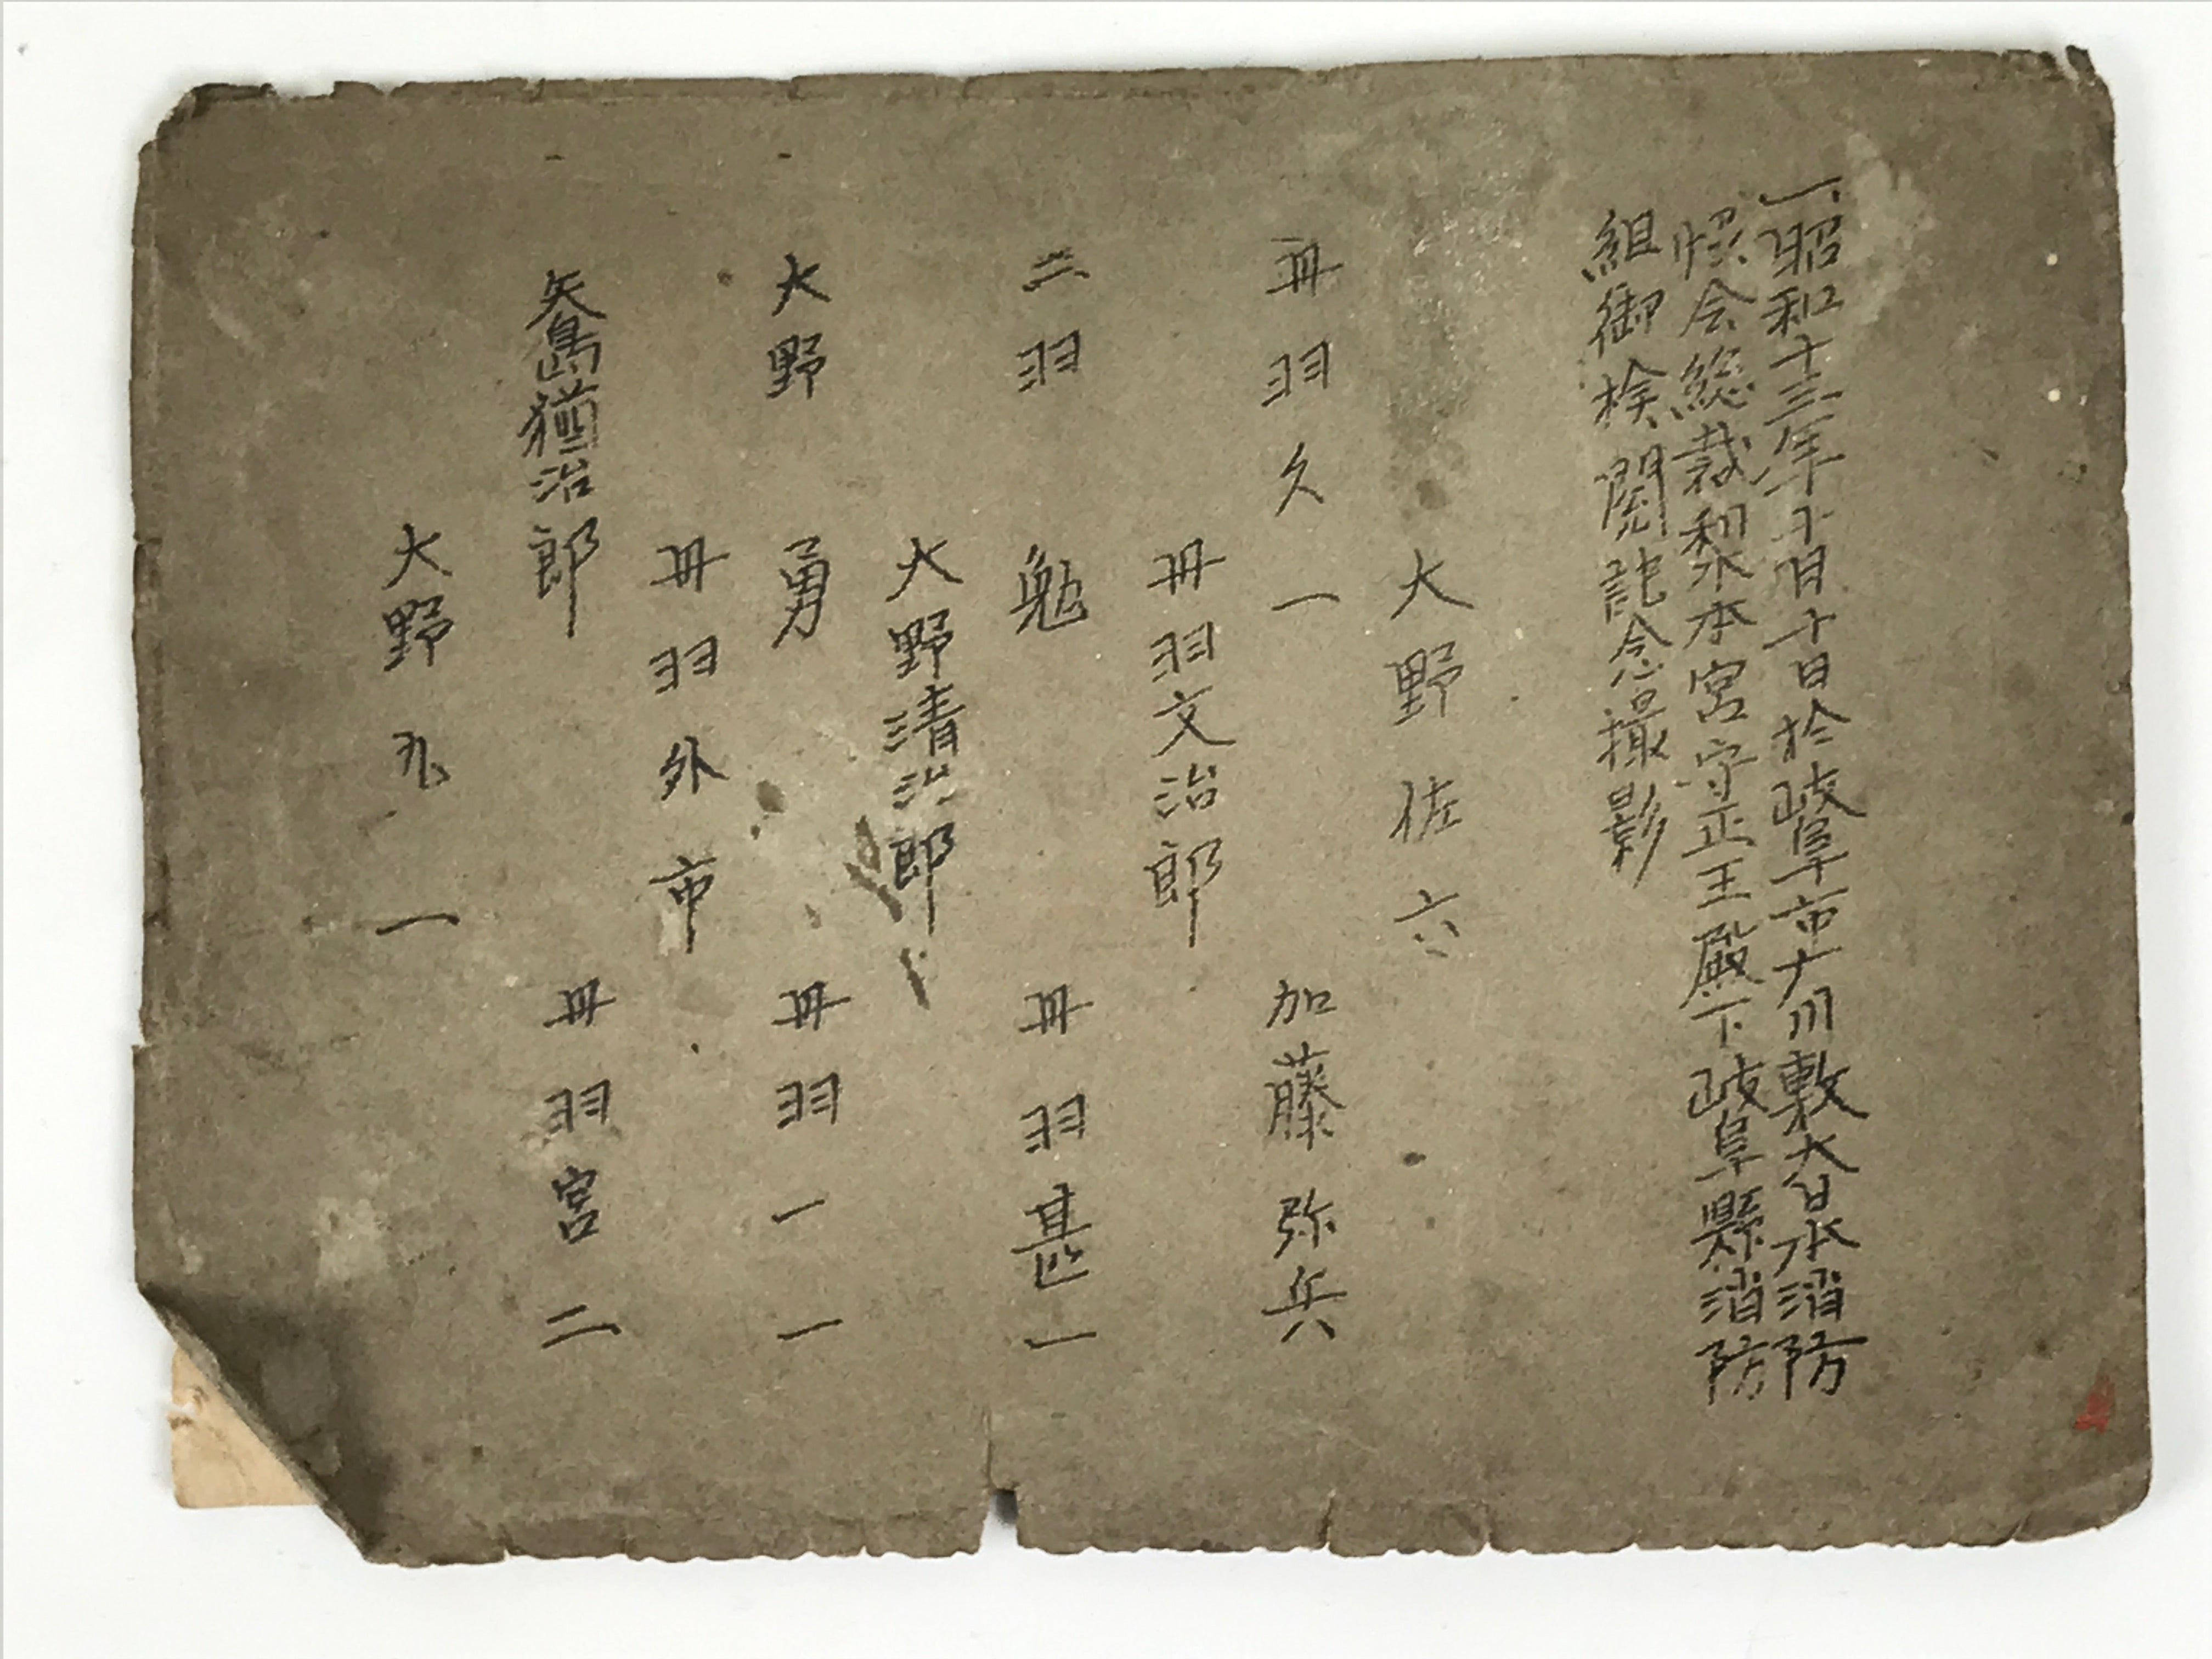 一昭和十三年十月十日於岐阜市大川敷大日本消防
協会総裁梨本宮守正王殿下岐阜縣消防
組御検閲記念撮影
大野佐六
丹羽久一
加藤弥兵
丹羽文治郎
二羽 勉
丹羽甚一
大野清治郎
大野 勇
丹羽一一
丹羽外市
矢島猶治郎
丹羽宮二
大野 一